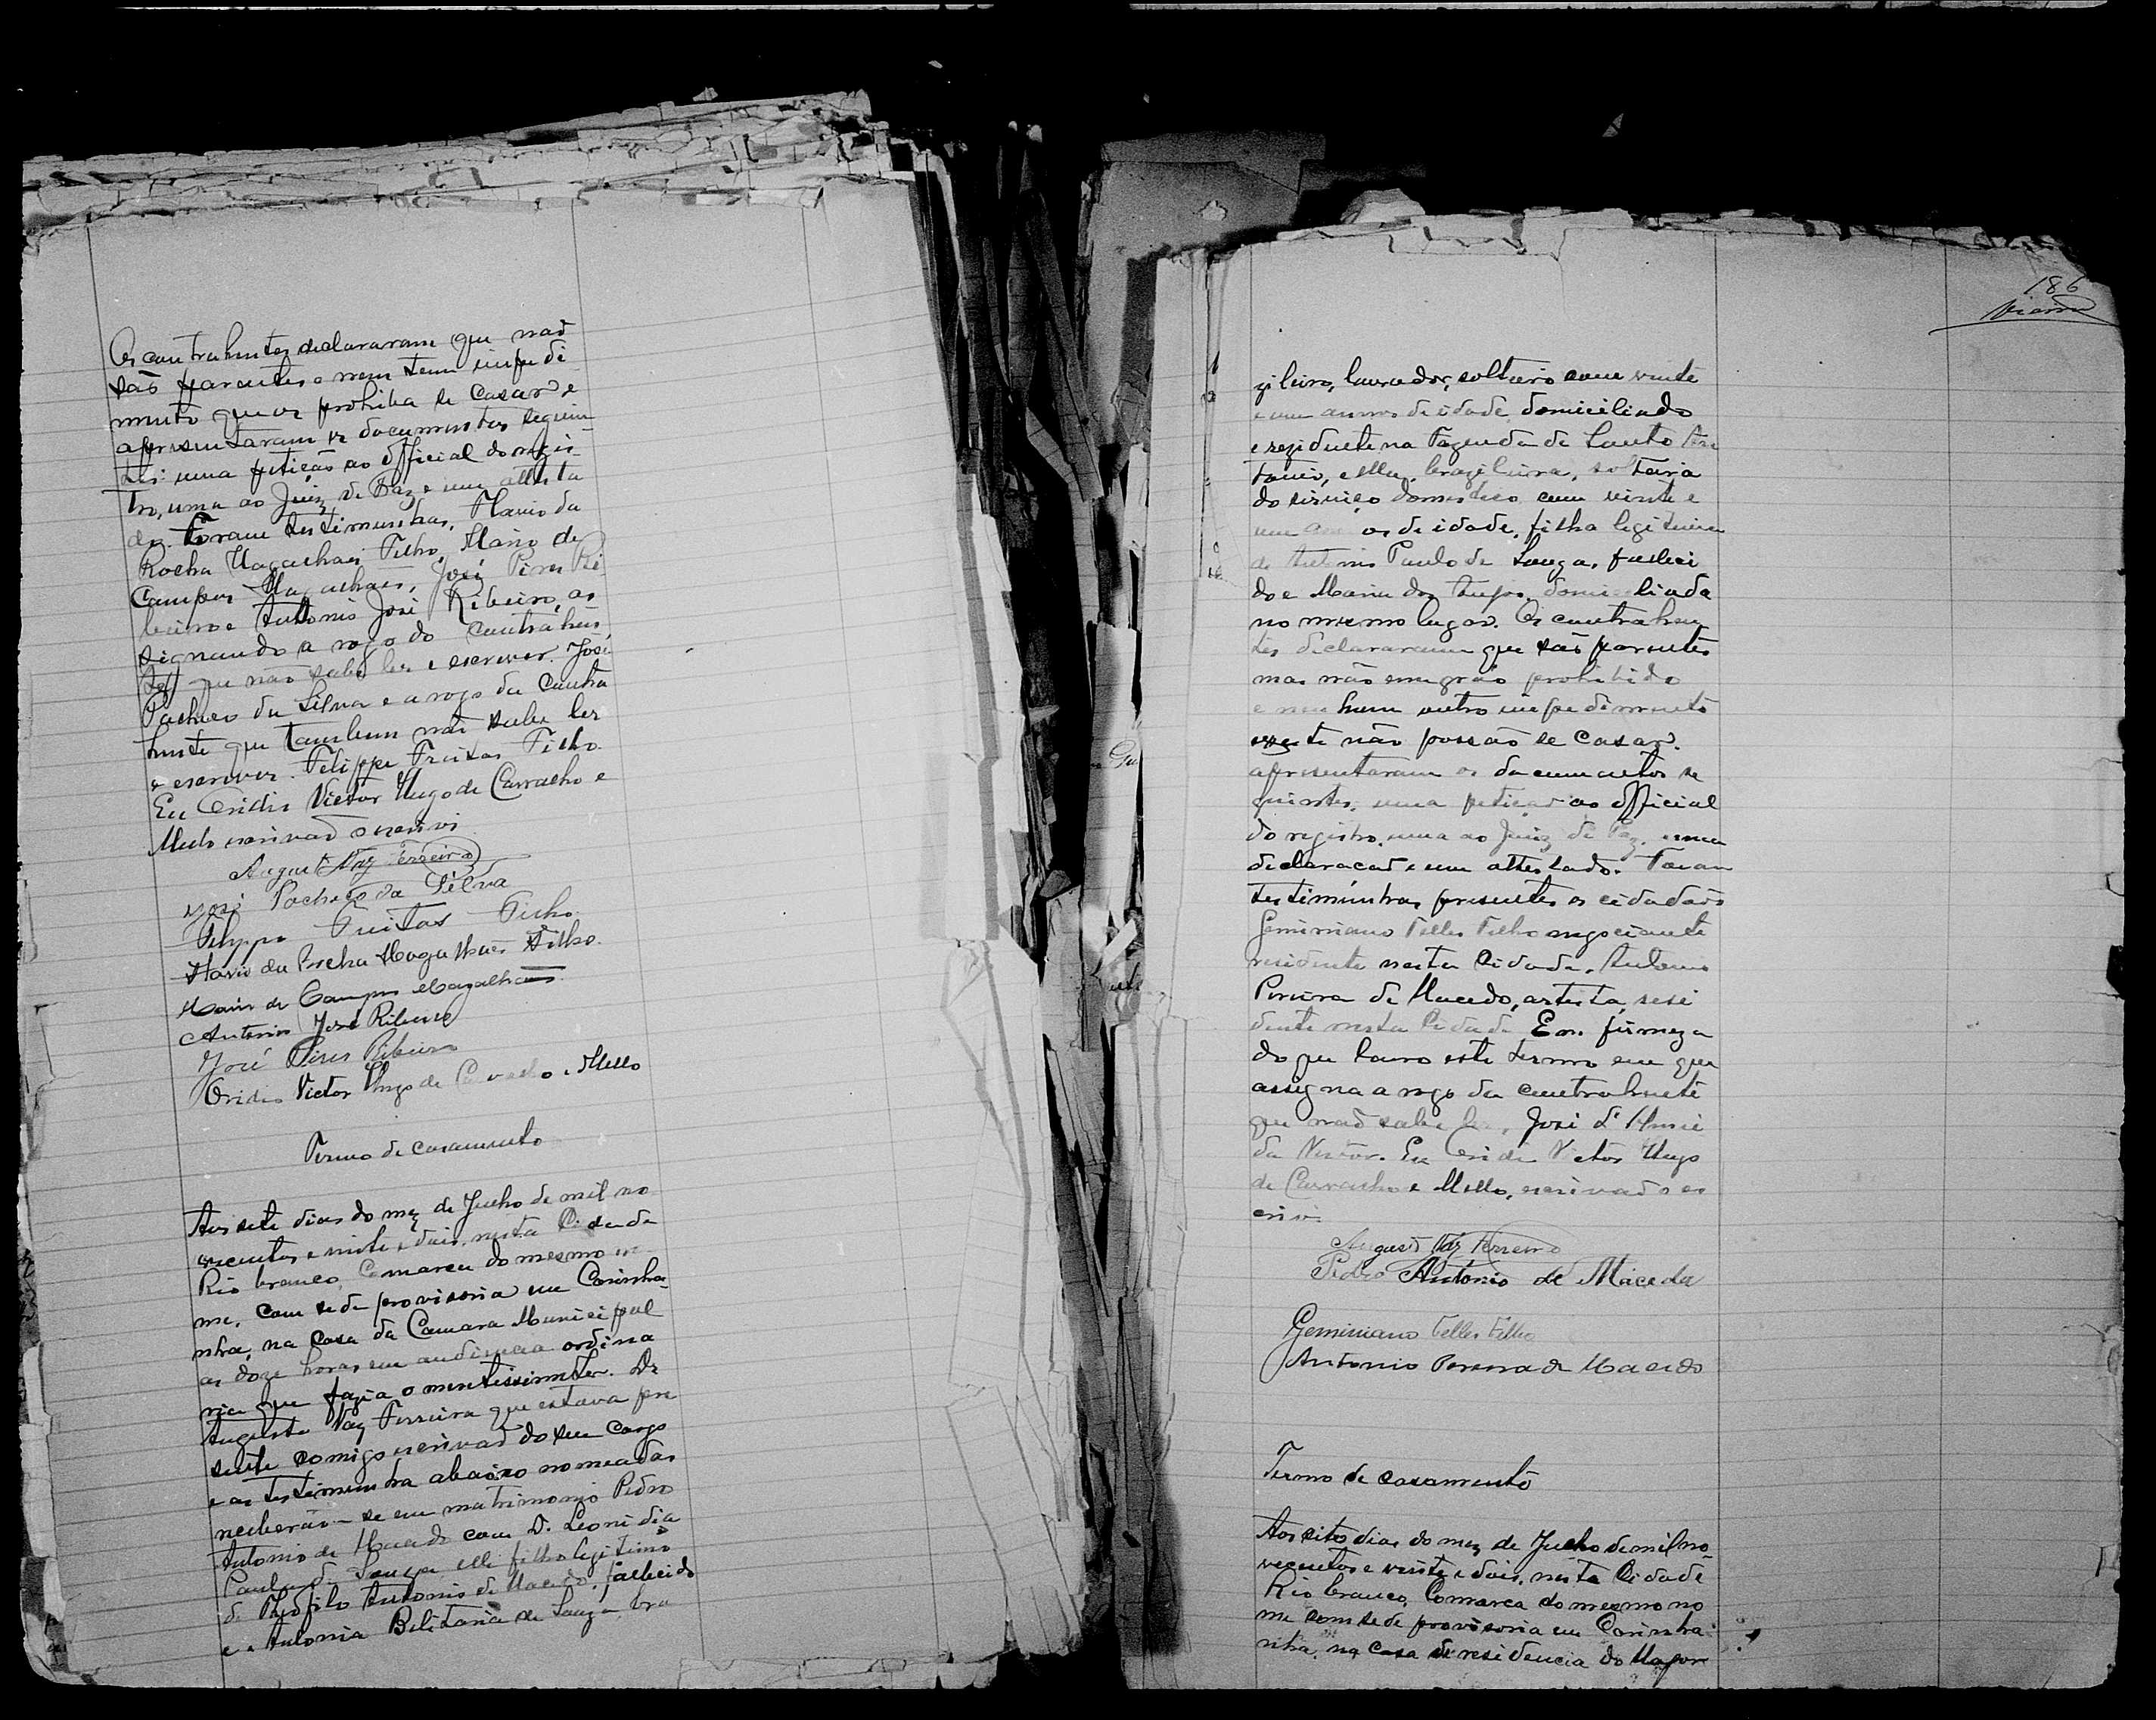 Os contrahentes declararam que não
são parentes e nem tem impedi
mento que os prohiba se casar e
apresentaram os documentos seguin
tes: uma petição ao official do regis
tro, uma ao Juiz de Paz e um attesta
do. Foram testimunhas, Flavio da
Rocha Magalhães Filho, Mario de
Campos Magalhães, José Pires Ri
beiro e Antonio José Ribeiro, as
signando a rogo do contrahen
te que não sabe ler e escrever José
Pacheco da Silva e a rogo da contra
hente que tambem não sabe ler
e escrever Felippe Freitas Filho.
Eu Victor Hugo de Carvalho e
Mello escrivão o escrevi
Augusto Vaz Ferreira
José Pacheco da Silva
Felippe Freitas Filho
Flavio da Rocha Magalhães Filho.
Mario de Campos Magalhães
Antonio José Ribeiro
José Pires Ribeiro
Victor Hugo de Carvalho e Mello
Termo de casamento
Aos sete dias do mez de Julho de mil no
vecentos e vinte e dois, nesta Cidade de
Rio branco, Comarca do mesmo no
me, com sede provisoria em Carinha
nha, na casa da Camara Municipal
as doze horas em audiencia ordina
ria que fazia o Dr
Augusto Vaz Ferreira que estava pre
sente comigo escrivão do seu cargo
e as testimunha abaixo nomeadas
receberão-se em matrimonio Pedro
Antonio de Macedo com D. Leonidia
Paulo de Souza elle filho legitimo
de Theofilo Antonio de Macedo, fallecido
e Antonia de Souza, bra
186
zileiro, lavrador, solteiro com vinte
e um annos de idade domiciliado
e rezidente na Fazenda de Santo An
tonio, e ella, brazileira, solteira
do serviço domestico com vinte e
um an os de idade, filha legitima
de Antonio Paulo de Souza, falleci
do e Maria dos Anjos, domiciliada
no mesmo lugar. Os contrahen
tes declararam que são parentes
mas não em grão prohibido
e nenhum outro impedimento
existe não possão se casar.
apresentaram os documentos se
guintes: uma petição ao official
do registro, uma ao Juiz de Paz, uma
declaracao e um attestado. Foram
testimunhas presentes os cidadãos
Geminiano Telles Filho negociante
residente nesta Cidade, Antonio
Pereira de Macedo, artista, resi
dente nesta Cidade. Em firmeza
do que lavro este termo em que
assigna a rogo da contrahente
que não sabe ler, José
da Eu Victor Hugo
de Carvalho e Mello, escrivão o es
crevi.
Augusto Vaz Ferreira
Pedro Antonio de Macedo
Geminiano Telles Filho
Antonio Pereira de Macedo
Termo de casamento
Aos oito dias do mez de Julho de mil no
vecentos e vinte e dois, nesta Cidade
Rio branco, Comarca do mesmo no
me com sede provisoria em Carinha
nha, na casa de residencia do Major